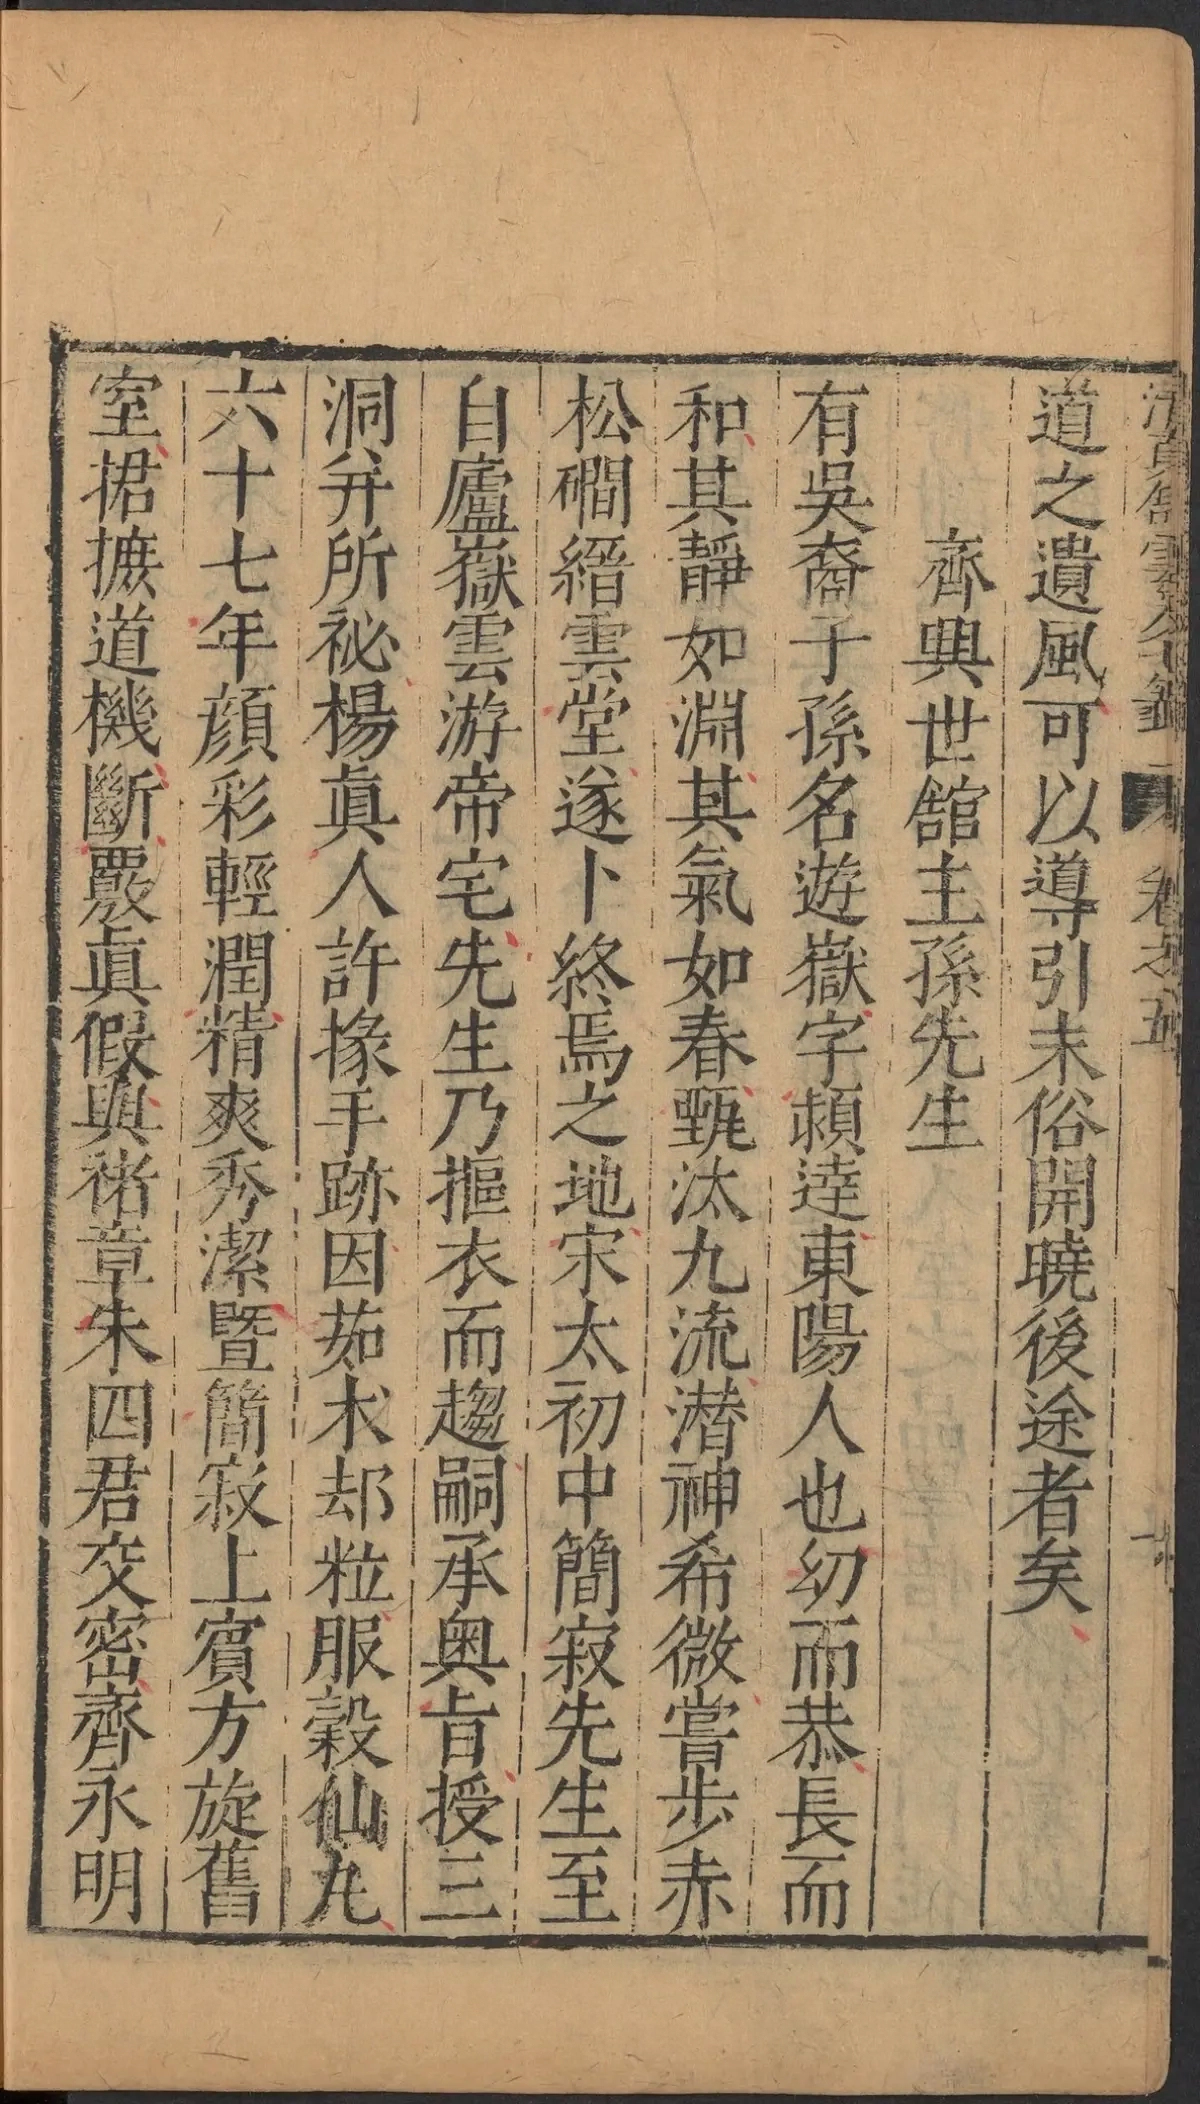 道之遺風可以導引末俗開曉後途者矣
齊興世館主孫先生
有吳裔子孫名遊嶽字頳逹東陽人也幼而恭長而
和其靜如淵其氣如春甄汰九流潜神希微嘗步赤
松磵縉雲堂遂卜終焉之地宋太初中簡寂先生至
自廬嶽雲游帝宅先生乃摳衣而趨嗣承奥旨授三
洞并所祕楊眞人許掾手跡因茹朮却粒服榖仙丸
六十七年顔彩輕潤精爽秀潔暨簡寂上賔方旋舊
室捃摭道機斷覈眞假與褚章朱四君交密齊永明